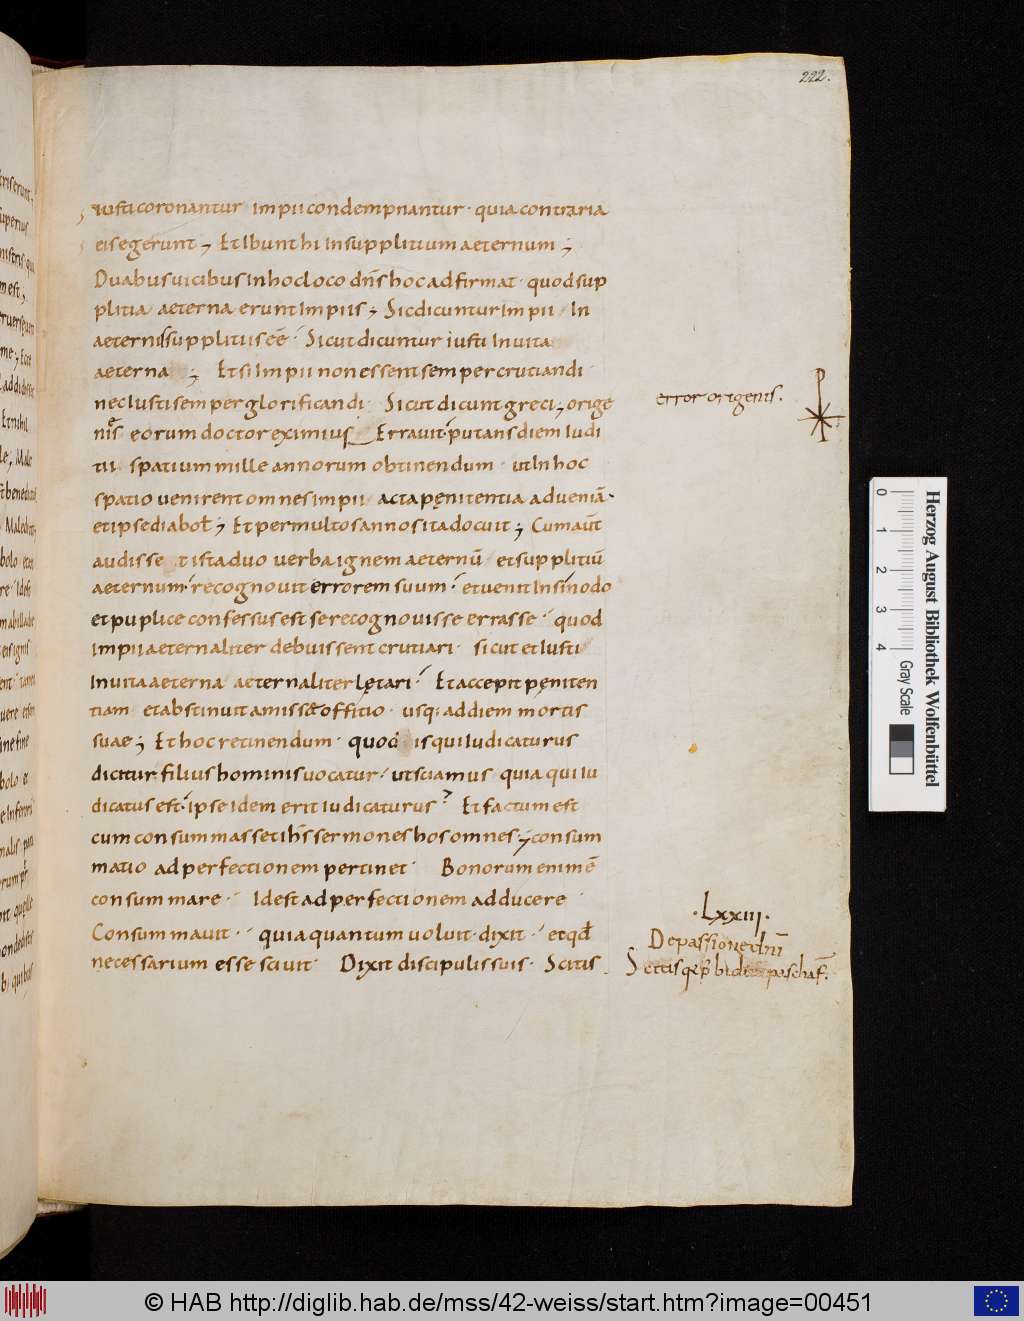 222.
iusti coronantur impii condempnantur · quia contraria
eis egerunt ; Et Ibunt hi In supplitium aeternum ;
Duabus uicibus In hoc loco dñs hoc adfirmat · quod sup
plitia aeterna erunt Impiis ; Sic dicuntur Impii In
aeternis supplitiis eē · Sicut dicuntur iusti In uita
aeterna ; Et si Impii non essent semper crutiandi
nec Iusti semper glorificandi · Sicut dicunt greci ; orige
nis eorum doctor eximius Errauit · putans diem Iudi
tii spatium mille annorum obtinendum · ut In hoc
spatio uenirent omnes impii acta pęnitentia ad ueniā ·
et ipse diabol ; Et per multos annos ita docuit ; Cum aūt
audisse t ista duo uerba ignem aeternū et supplitiū
aeternum · recognouit errorem suum · et uenit In sinodo
et puplice confessus est se recognouisse errasse · quod
impii aeternaliter debuissent crutiari · sicut et Iusti
In uita aeterna aeternaliter lętari · Et accepit pęniten
tiam et abstinuit a missae offitio usq; ad diem mortis
suae ; Et hoc retinendum · quod is qui Iudicaturus
dicitur filius hominis uocatur · ut sciamus quia qui Iu
dicatus est · ipse idem erit iudicaturus Et factum est
cum consummasset ihs sermones hos omnes ; consum
matio ad perfectionem pertinet · Bonorum enim ē
consummare · Id est ad perfectionem adducere
Consummauit · quia quantum uoluit · dixit · et qd
necessarium esse sciuit · Dixit discipulis suis · Scitis
error origenis.
· Lxxiii ·
De passione dni
Scitis
Herzog August Bibliothek Wolfenbüttel
0 1 2 3 4
Gray Scale
© HAB http://diglib.hab.de/mss/42-weiss/start.htm?image=00451